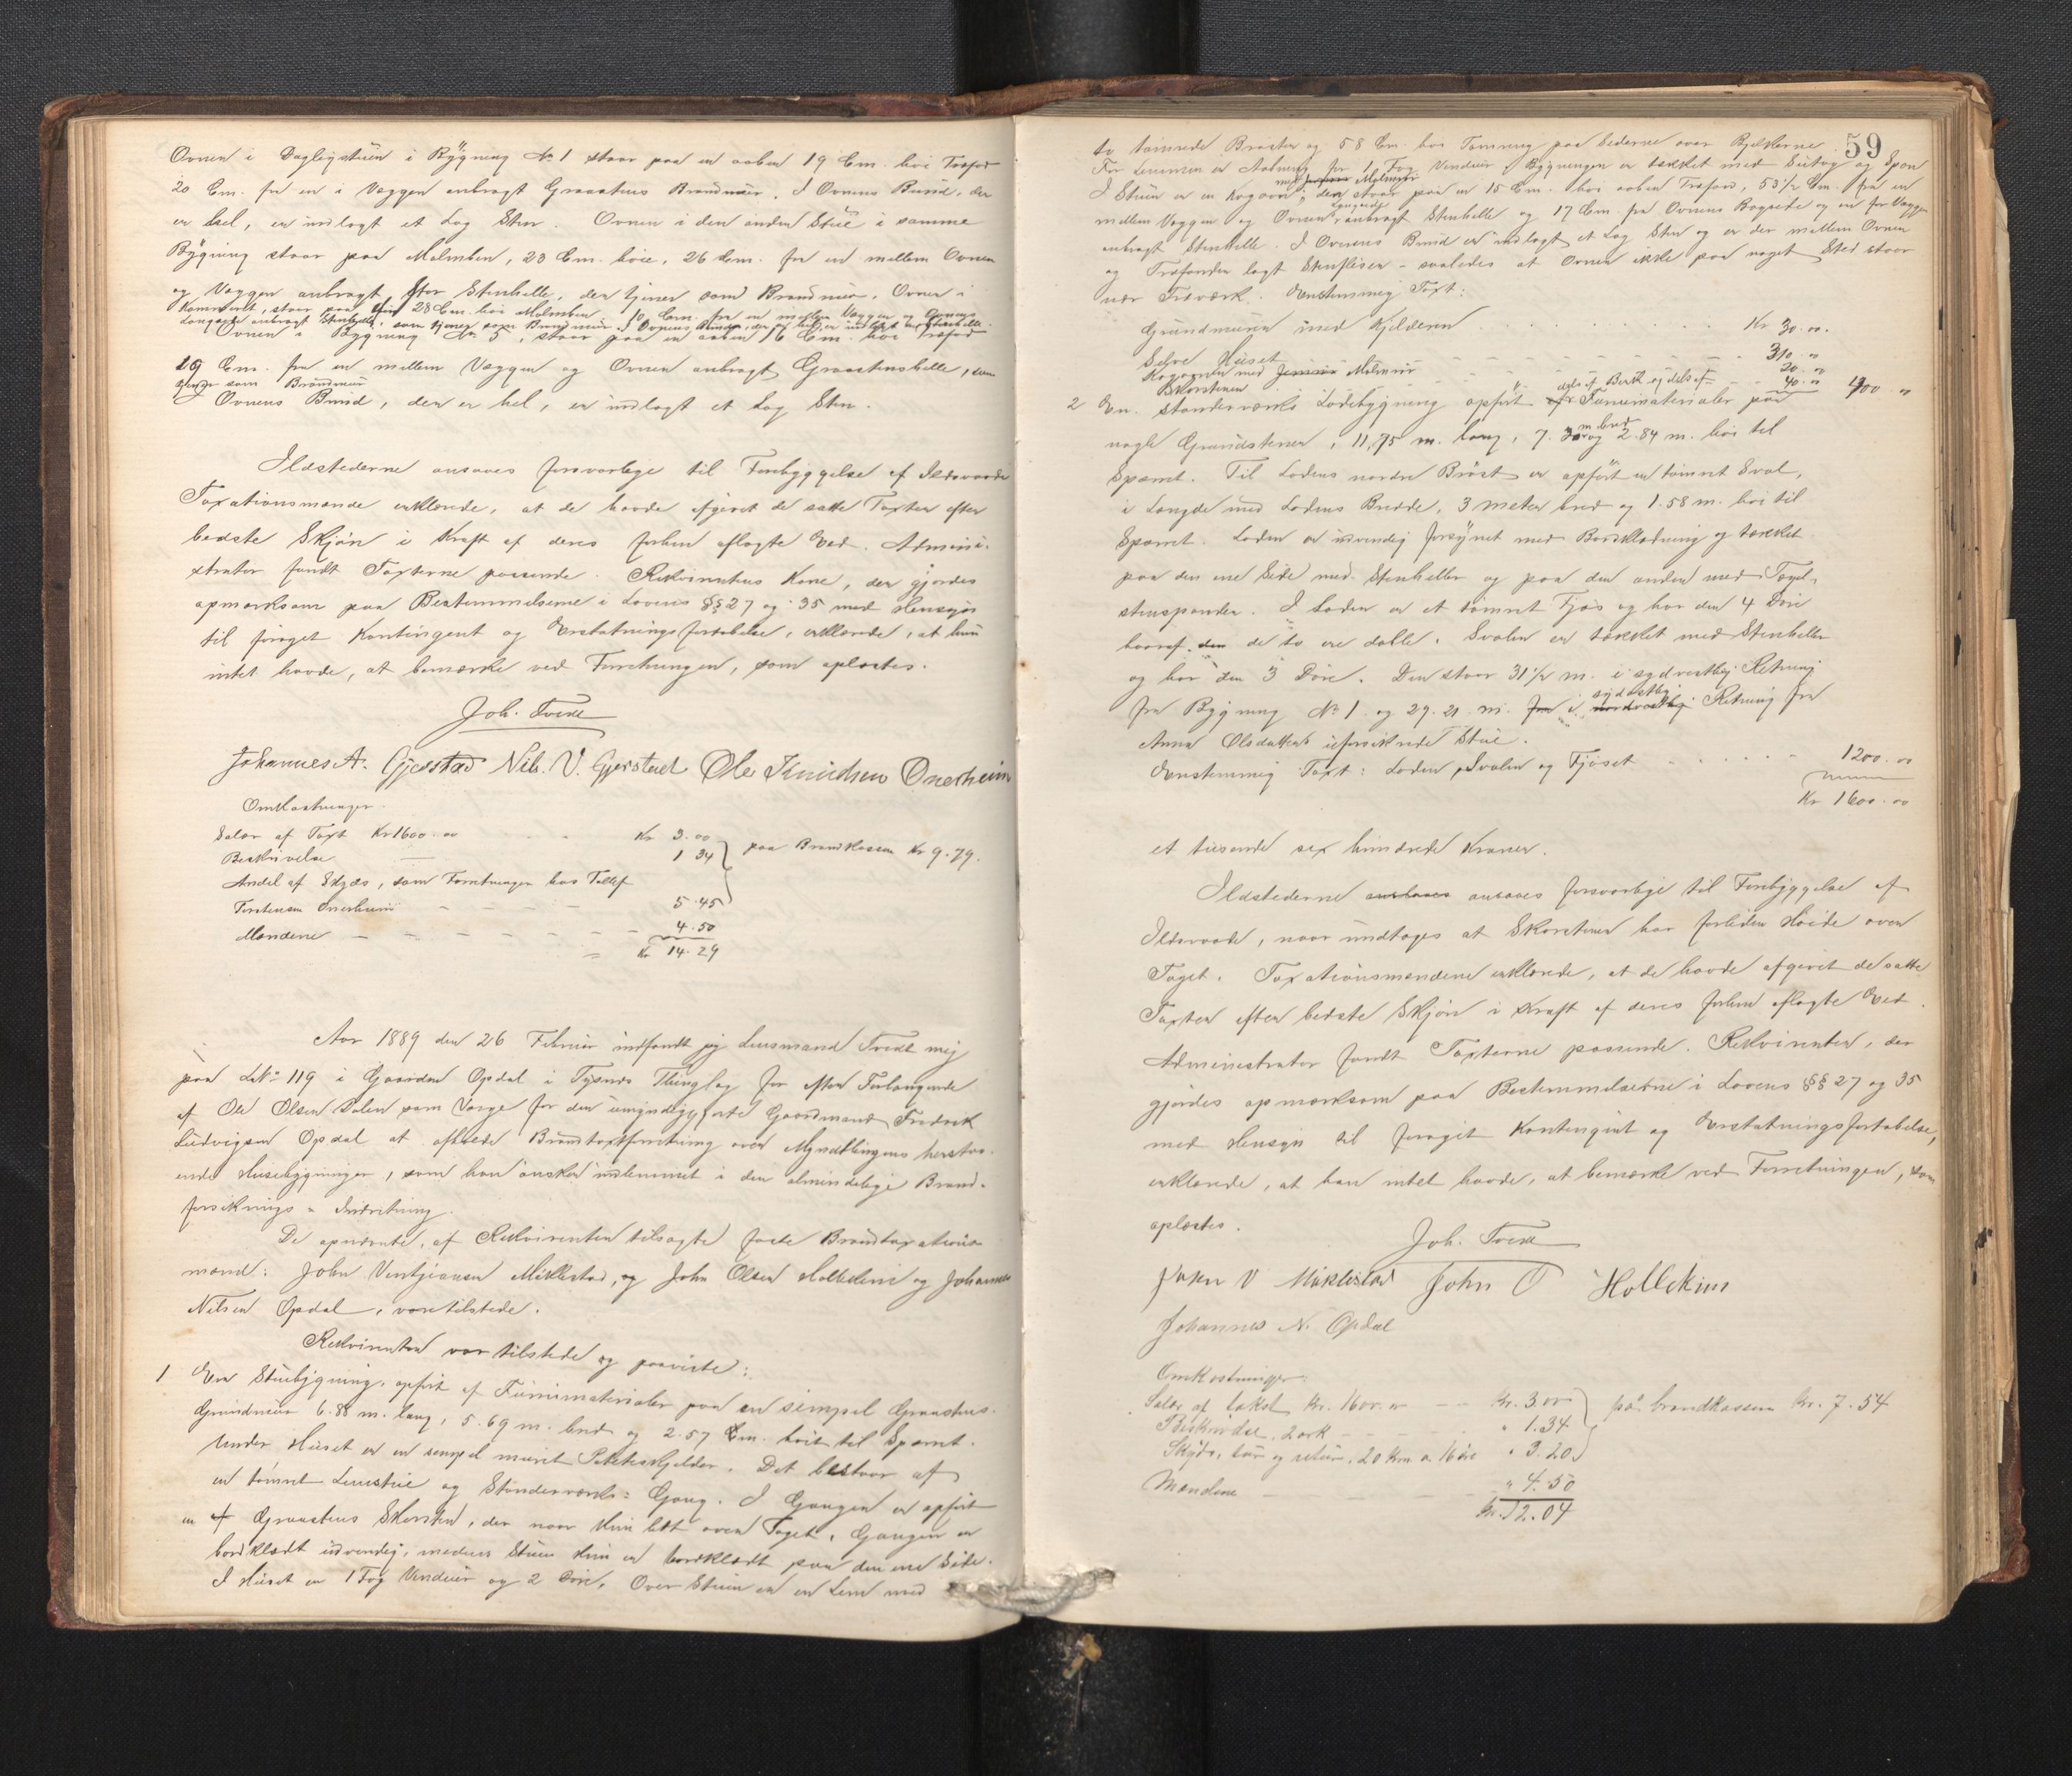 Ovnen i Dagligstuen i Bygning No 1 staar paa en aaben 19 Cm. høi Træfod
20 Cm. fra en i Væggen anbragt Graastens Brandmuur. I Ovnens Bund, der
er hel, er indlagt et Lag Sten. Ovnen i den anden Stue i samme
Bygning staar paa Malmben, 23 Cm. høie, 26 Cm. fra en mellem Ovnen
og Væggen anbragt stor Stenhelle, der tjener som Brandmur. Ovnen i
Kammerset, staar paa 28 Cm. høi Malmben 10 Cm. fra en mellem Væggen og Ovnens
Langside anbragt Stenhelle, som tjener som Brandmuur. I Ovnens Bund, der er hel, er indlagt en Stenhelle.
Ovnen i Bygning No 5, staar paa en aaben 16 Cm. høi Træfod
18 Cm. fra en mellem Væggen og Ovnen anbragt Graastenshelle, som
tjener som Brandmuur
I Ovnens Bund, der er hel, er indlagt et Lag Sten.
Ildstederne ansaaes forsvarlige til Forebyggelse af Ildsvaade
Taxationsmændene erklærede, at de havde afgivet de satte Taxter efter
bedste Skjøn i Kraft af deres forhen aflagte Eed. Admini-
strator fandt Taxterne passende. Rekvirentens Kone, der gjordes
opmærksom paa Bestemmelserne i Lovens §§ 27 og 35 med Hensyn
til forøget Kontingent og Erstatningsfortabelse, erklærede, at hun
intet havde, at bemærke ved Forretningen, som oplæstes.
Joh. Tvedt
Johannes A. Gjerstad Nils. V. Gjerstad Ole Knudsen Onerheim
Omkostninger.
Salær af Taxt Kr 1600.00 Kr 3.00
Beskrivelse 1 34 paa Brandkassen Kr 9.79.
Andel af Skyds, som Forretningen hos Tollef
Torstensen Onerheim 5.45
Mændene 4.50
= Kr 14.29
Aar 1889 den 26 Februar indfandt jeg Lensmand Tvedt mig
paa LNo 119 i Gaarden Opdal i Tysnes Thinglag for efter Forlangende
af Ole Olsen Dalen som Værge for den umyndiggjorte Gaardmand Fredrik
Ludvigsen Opdal at afholde Brandtaxtforretning over Myndlingens herstaa-
ende Husebygninger, som han ønsker indlemmet i den almindelige Brand-
forsikrings-Indretning.
De opnævnte, af Rekvirenten tilsagte faste Brandtaxations-
mænd: John Ventjensen Miklestad, og John Olsen Hollekim og Johannes
Nilsen Opdal, vare tilstede.
Rekvirenten var tilstede og paaviste:
1 En Stuebygning, opført af Furumaterialer paa en simpel Graastens-
Grundmuur 6.88 m. lang, 5.69 m. bred og 2.57 Cm. høit til Spærret.
Under Huset er en simpel muret Poteteskjelder. Det bestaar af
en tømret Lemstue og Stænderværks-Gang. I Gangen er opført
en af Graastens Skorsten, der naar kun lidt over Taget. Gangen er
bordklædt udvendig, medens Stuen kun er bordklædt paa den ene Side.
I Huset er 1 Fag Vinduer og 2 Døre. Over Stuen er en Lem med
59
to tømrede Brøster og 58 Cm. høi Tømring paa Siderne over Bjelkerne.
For Lemmen er Aabning for 1 Fag Vinduer. Bygningen er tækket med Baktag og Spon
I Stuen er en Kogeovn med Malmrør, der staar paa en 15 Cm. høi aaben Træfod, 53 1/2 Cm. fra en
mellem Væggen og Ovnens Langside anbragt Stenhelle og 17 Cm. fra Ovnens Bagside og en for Væggen
anbragt Stenhelle. I Ovnens Bund er indlagt et Lag Sten og er der mellem Ovnen
og Træfoden lagt Stenfliser - saaledes at Ovnen ikke paa noget Sted staar
nær Træværk. Enstemmig Taxt:
Grundmuren med Kjelderen Kr 30.00.
Selve Huset 310 "
Kogeovn med Malmrør 20 "
Skorstenen 40 " 400 "
2 En Stænderværks Ladebygning opført dels af Birk og dels af Furumaterialer paa
nogle Grundstener, 11,75 m. lang, 7.30 m bred og 2.84 m. høi til
Spærret. Til Ladens nordre Brøst er opført en tømret Sval,
i Længde med Ladens Bredde, 3 Meter bred og 1.58 m. høi til
Spærret. Laden er udvendig forsynet med Bordklædning og tækket
paa den ene Side med Stenheller og paa den anden med Tagl-
stenspander. I Laden er et tømret Fjøs og har den 4 Døre
hvoraf den de to ere doble. Svalen er tækket med Stenheller
og har den 3 Døre. Den staar 31 1/2 m. i sydvestlig Retning
fra Bygning No 1 og 29.21 m. fra i sydøstlig nordvestlig Retning fra
Anna Olsdatters uforsikrede Stue.
Enstemmig Taxt: Laden, Svalen og Fjøset 1200.00
Kr 1600.00
et tusende sex hundrede Kroner.
Ildstederne ansaaes ansaaes forsvarlige til Forebyggelse af
Ildsvaade, naar undtages at Skorstenen har forliden Høide over
Taget. Taxationsmændene erklærede, at de havde afgivet de satte
Taxter efter bedste Skjøn i Kraft af deres forhen aflagte Eed.
Administrator fandt Taxterne passende. Rekvirenten, der
gjordes opmærksom paa Bestemmelserne i Lovens §§ 27 og 35
med Hensyn til forøget Kontingent og Erstatningsfortabelse,
erklærede, at han intet havde, at bemærke ved Forretningen, som
oplæstes.
Joh. Tvedt
John V Miklestad John O Hollekim
Johannes N. Opdal
Omkostninger:
Salær af takst Kr. 1600.00 Kr. 3.00 på brandkassen Kr. 7.54
Beskrivelse. 2 ark " 1.34
Skyds, tur og retur, 20 Km a 16 øre " 3.20
Mændene " 4.50
Kr. 12.04